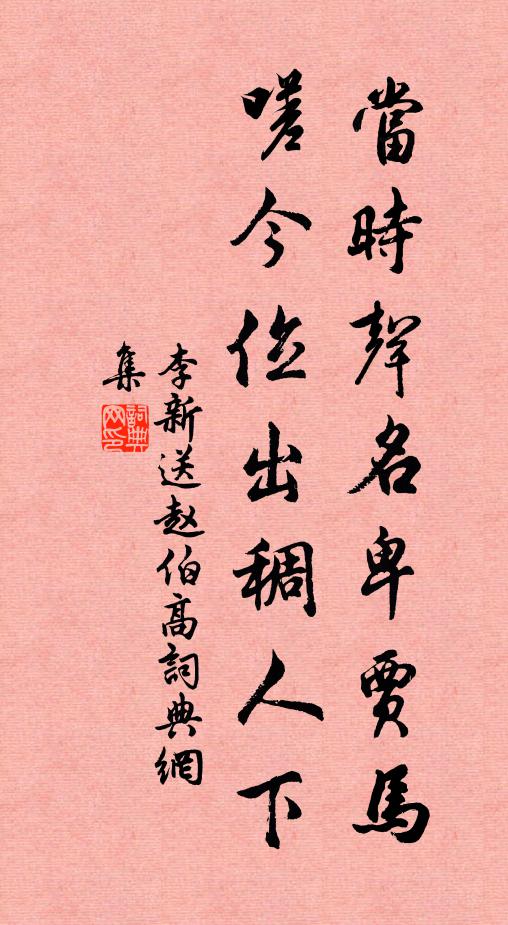 當時聲名卑賈馬
嗟今位出稠人下
李新送赵伯高詞典網
集
詞典网印